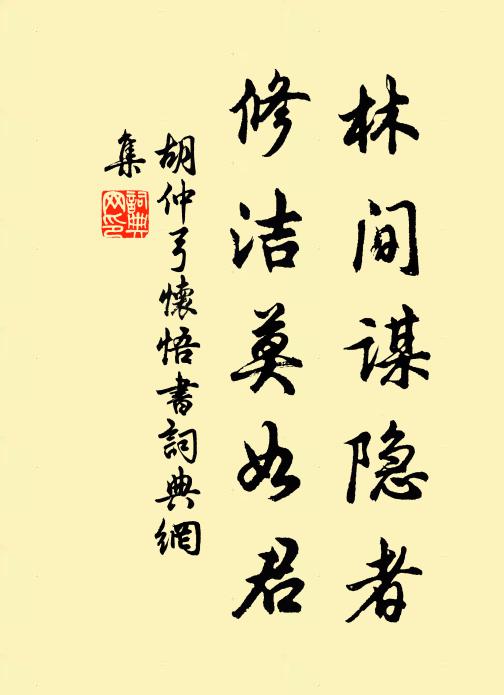 林间谋隐者
修洁莫如君
胡仲弓懷悟書詞典網
集
詞典
网印